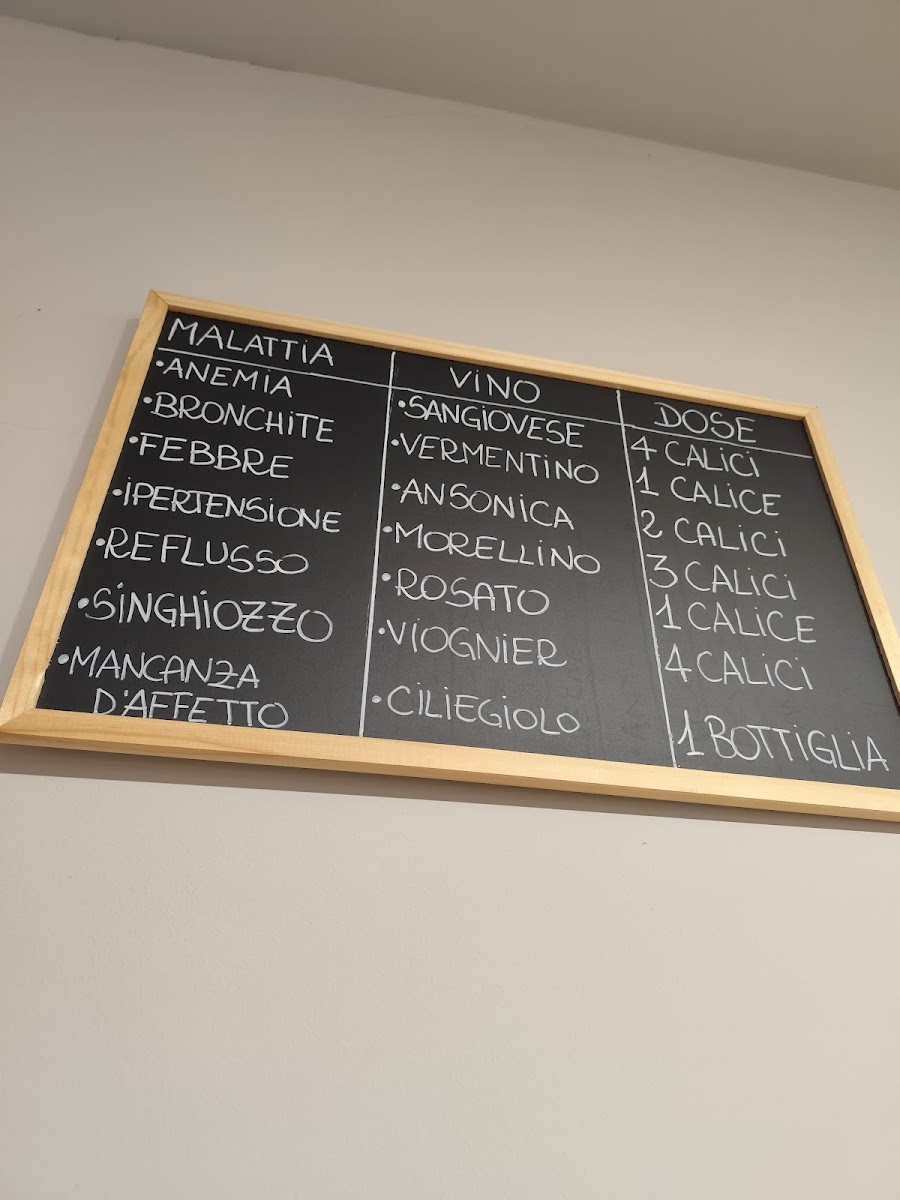 MALATTIA VINO DOSE
•ANEMIA •SANGIOVESE 4 CALICI
•BRONCHITE •VERMENTINO 1 CALICE
•FEBBRE •ANSONICA 2 CALICI
•IPERTENSIONE •MORELLINO 3 CALICI
•REFLUSSO •ROSATO 1 CALICE
•SINGHIOZZO •VIOGNIER 4 CALICI
•MANCANZA
D'AFFETTO •CILIEGIOLO 1 BOTTIGLIA